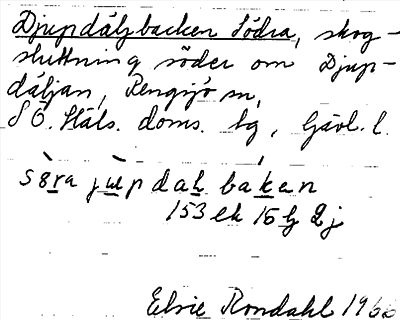 Djupdälsbacken Södra, skog-
sluttning söder om Djup-
däljan, Rengsjö sn,
S Ö. Häls. doms. lg, Gävl. l.
söra jupdal bakan
153 ek 15 g 2j
Elsie Rondahl 1966